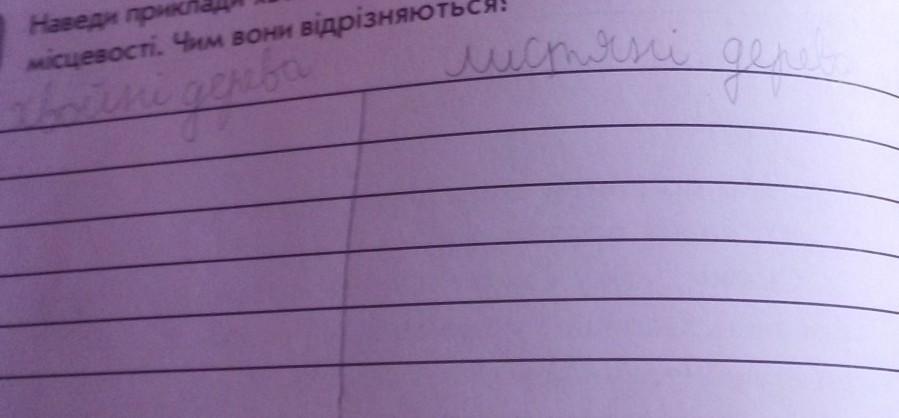 Наведи приклади
місцевості. Чим вони відрізняються?
хвойні дерева листяні дерева